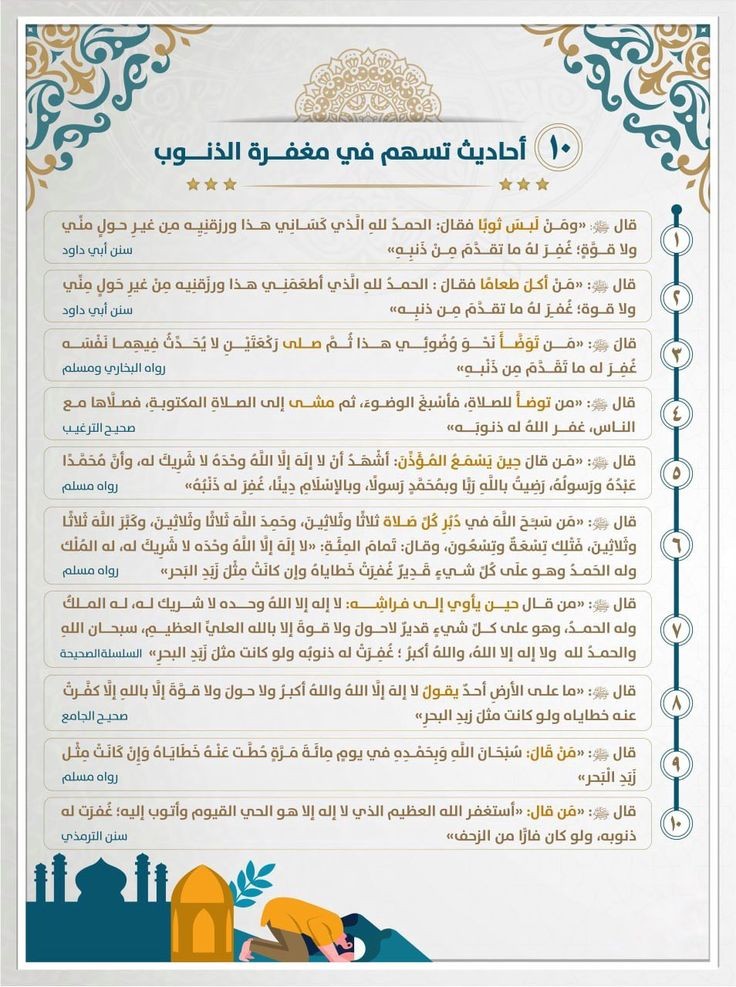 ١٠ أحاديث تسهم في مغفــرة الذنــوب
١
قال ﷺ: «ومَنْ لَبِسَ ثوبًا فقالَ: الحمدُ للهِ الَّذي كَسَـانِي هـذا ورزقنِيـه مِن غيـرِ حـولٍ منِّي
ولا قــوَّةٍ؛ غُفِـرَ لهُ ما تقـدَّمَ مِـنْ ذَنبِـهِ»
سنن أبي داود
٢
قال ﷺ: «مَـنْ أكـلَ طعامًا فقالَ : الحمـدُ للهِ الَّذي أطعَمَنِـي هـذا ورزَقنِيـه مِنْ غيرِ حَولٍ مِنِّي
ولا قـوة؛ غُفِـرَ لهُ ما تقـدَّمَ مِـن ذنبِـه»
سنن أبي داود
٣
قالَ ﷺ: «مَــن تَوَضَّــأَ نَحْــوَ وُضُوئِــي هــذا ثُــمَّ صلى رَكْعَتَيْــنِ لا يُحَــدِّثُ فِيهِمــا نَفْسَــه
غُفِـرَ له ما تَقَـدَّمَ مِن ذَنْبـهِ»
رواه البخاري ومسلم
٤
قال ﷺ: «من توضـأَ للصلاةِ، فأسْبغَ الوضـوءَ، ثم مشـى إلى الصـلاةِ المكتوبـةِ، فصلَّاها مـع
الناس، غفــر اللهُ له ذنوبَــه»
صحيح الترغيب
٥
قال ﷺ: «مَـن قالَ حِينَ يَسْمَعُ المُـؤَذِّنَ: أشْهَدُ أنْ لا إلَهَ إلَّا اللَّهُ وحْدَهُ لا شَرِيكَ له، وأنَّ مُحَمَّدًا
عَبْدُهُ ورَسولُهُ، رَضِيتُ باللَّهِ رَبًّا وبمُحَمَّدٍ رَسولًا، وبالإسْلَامِ دِينًا، غُفِرَ له ذَنْبُهُ»
رواه مسلم
٦
قال ﷺ: «مَن سَبَّحَ اللَّهَ في دُبُرِ كُلِّ صَـلاة ثلاثًا وثَلاثِينَ، وحَمِدَ اللَّهَ ثَلاثًا وثَلاثِينَ، وكَبَّرَ اللَّهَ ثَلاثًا
وثَلاثِينَ، فَتْلِك تِسْعَةٌ وتِسْعُونَ، وقالَ: تَمامَ المِئَةِ: «لا إلَهَ إلَّا اللَّهُ وحْدَه لا شَرِيكَ له، له المُلْك
وله الحَمدُ وهـو علَى كُلِّ شـيءٍ قَـدِيرٌ غُفِرَتْ خَطاياهُ وإن كانَتْ مِثْلَ زَبَدِ البَحرِ»
رواه مسلم
٧
قال ﷺ: «من قــال حيــن يأوي إلــى فـراشِــه: لا إله إلا اللهُ وحـده لا شـريك لـه، لـه الملكُ
وله الحمدُ، وهو على كـلِّ شيءٍ قديرٌ لاحـولَ ولا قـوةَ إلا بالله العليِّ العظيـمِ، سبحـان اللهِ
والحمـدُ لله ولا إله إلا اللهُ، واللهُ أكبرُ ؛ غُفِرَتْ له ذنوبُه ولو كانت مثلَ زَبَدِ البحرِ»
السلسلة الصحيحة
٨
قال ﷺ: «ما علـى الأرضِ أحـدٌ يقـولُ لا إلهَ إلَّا اللهُ واللهُ أكبـرُ ولا حـولَ ولا قـوَّةَ إلَّا باللهِ إلَّا كفَّـرتْ
عنـه خطاياه ولـو كانت مثلَ زبدِ البحرِ»
صحيح الجامع
٩
قال ﷺ: «مَـنْ قَالَ: سُبْحَـانَ اللَّهِ وَبِحَمْـدِهِ في يومٍ مِائَـةَ مَـرَّةٍ حُطَّـت عَنْـهُ خَطَايَـاهُ وَإِن كَانَتْ مِثْـلَ
زَبَدِ الْبَحر»
رواه مسلم
١٠
قال ﷺ: «مَن قال: «أستغفر الله العظيم الذي لا إله إلا هـو الحي القيوم وأتـوب إليه؛ غُفرَت له
ذنوبه، ولو كان فارًا من الزحف»
سنن الترمذي